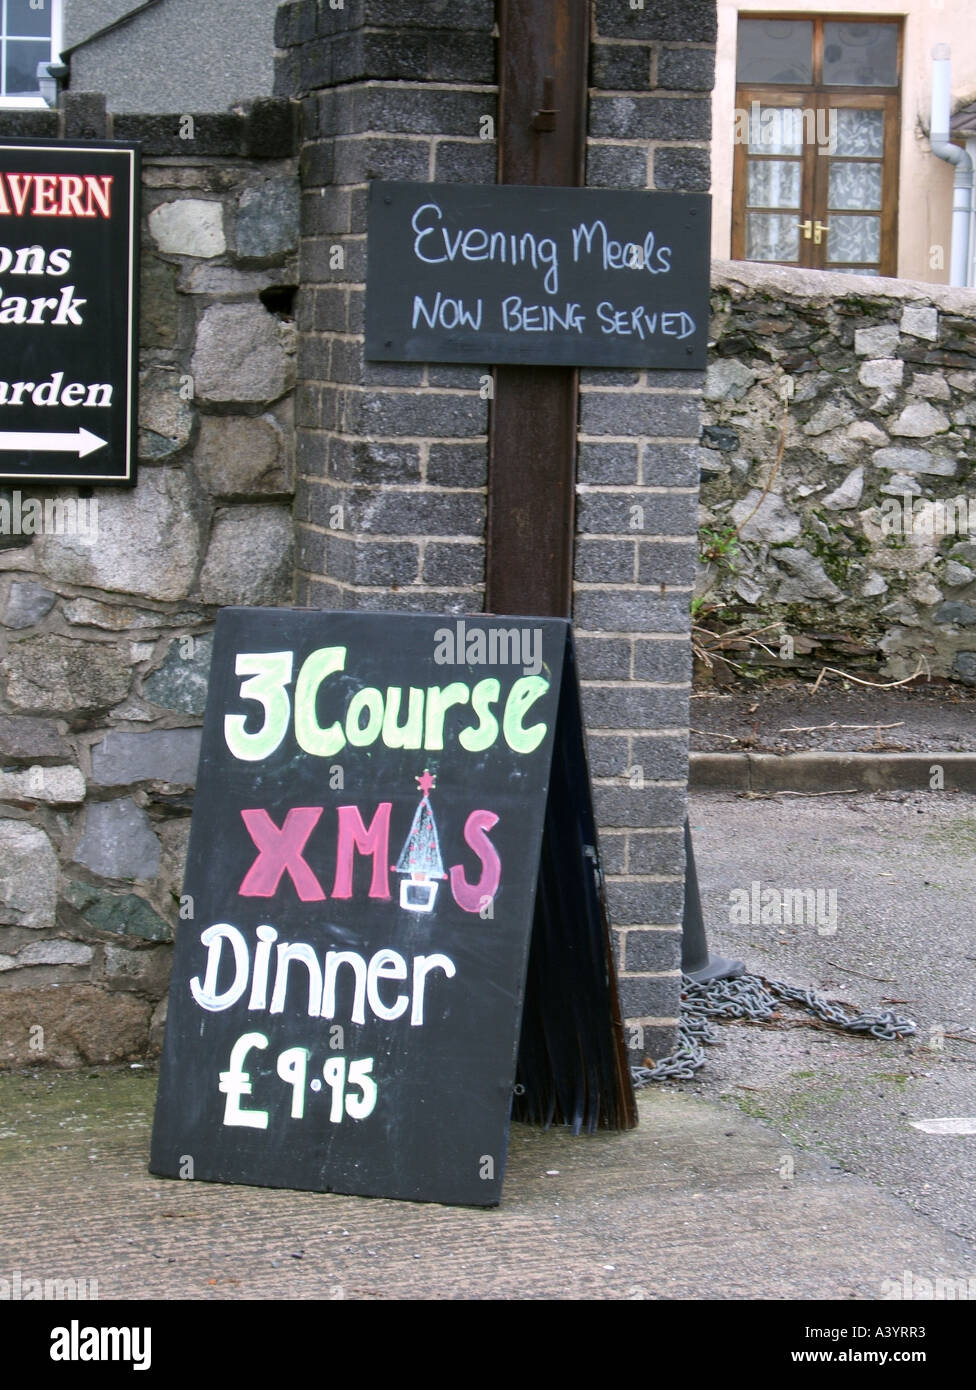 AVERN
ons
ark
arden
Evening Meals
NOW BEING SERVED
3 Course
XMAS
Dinner
£9.95
alamy
Image ID: A3YRR3
www.alamy.com